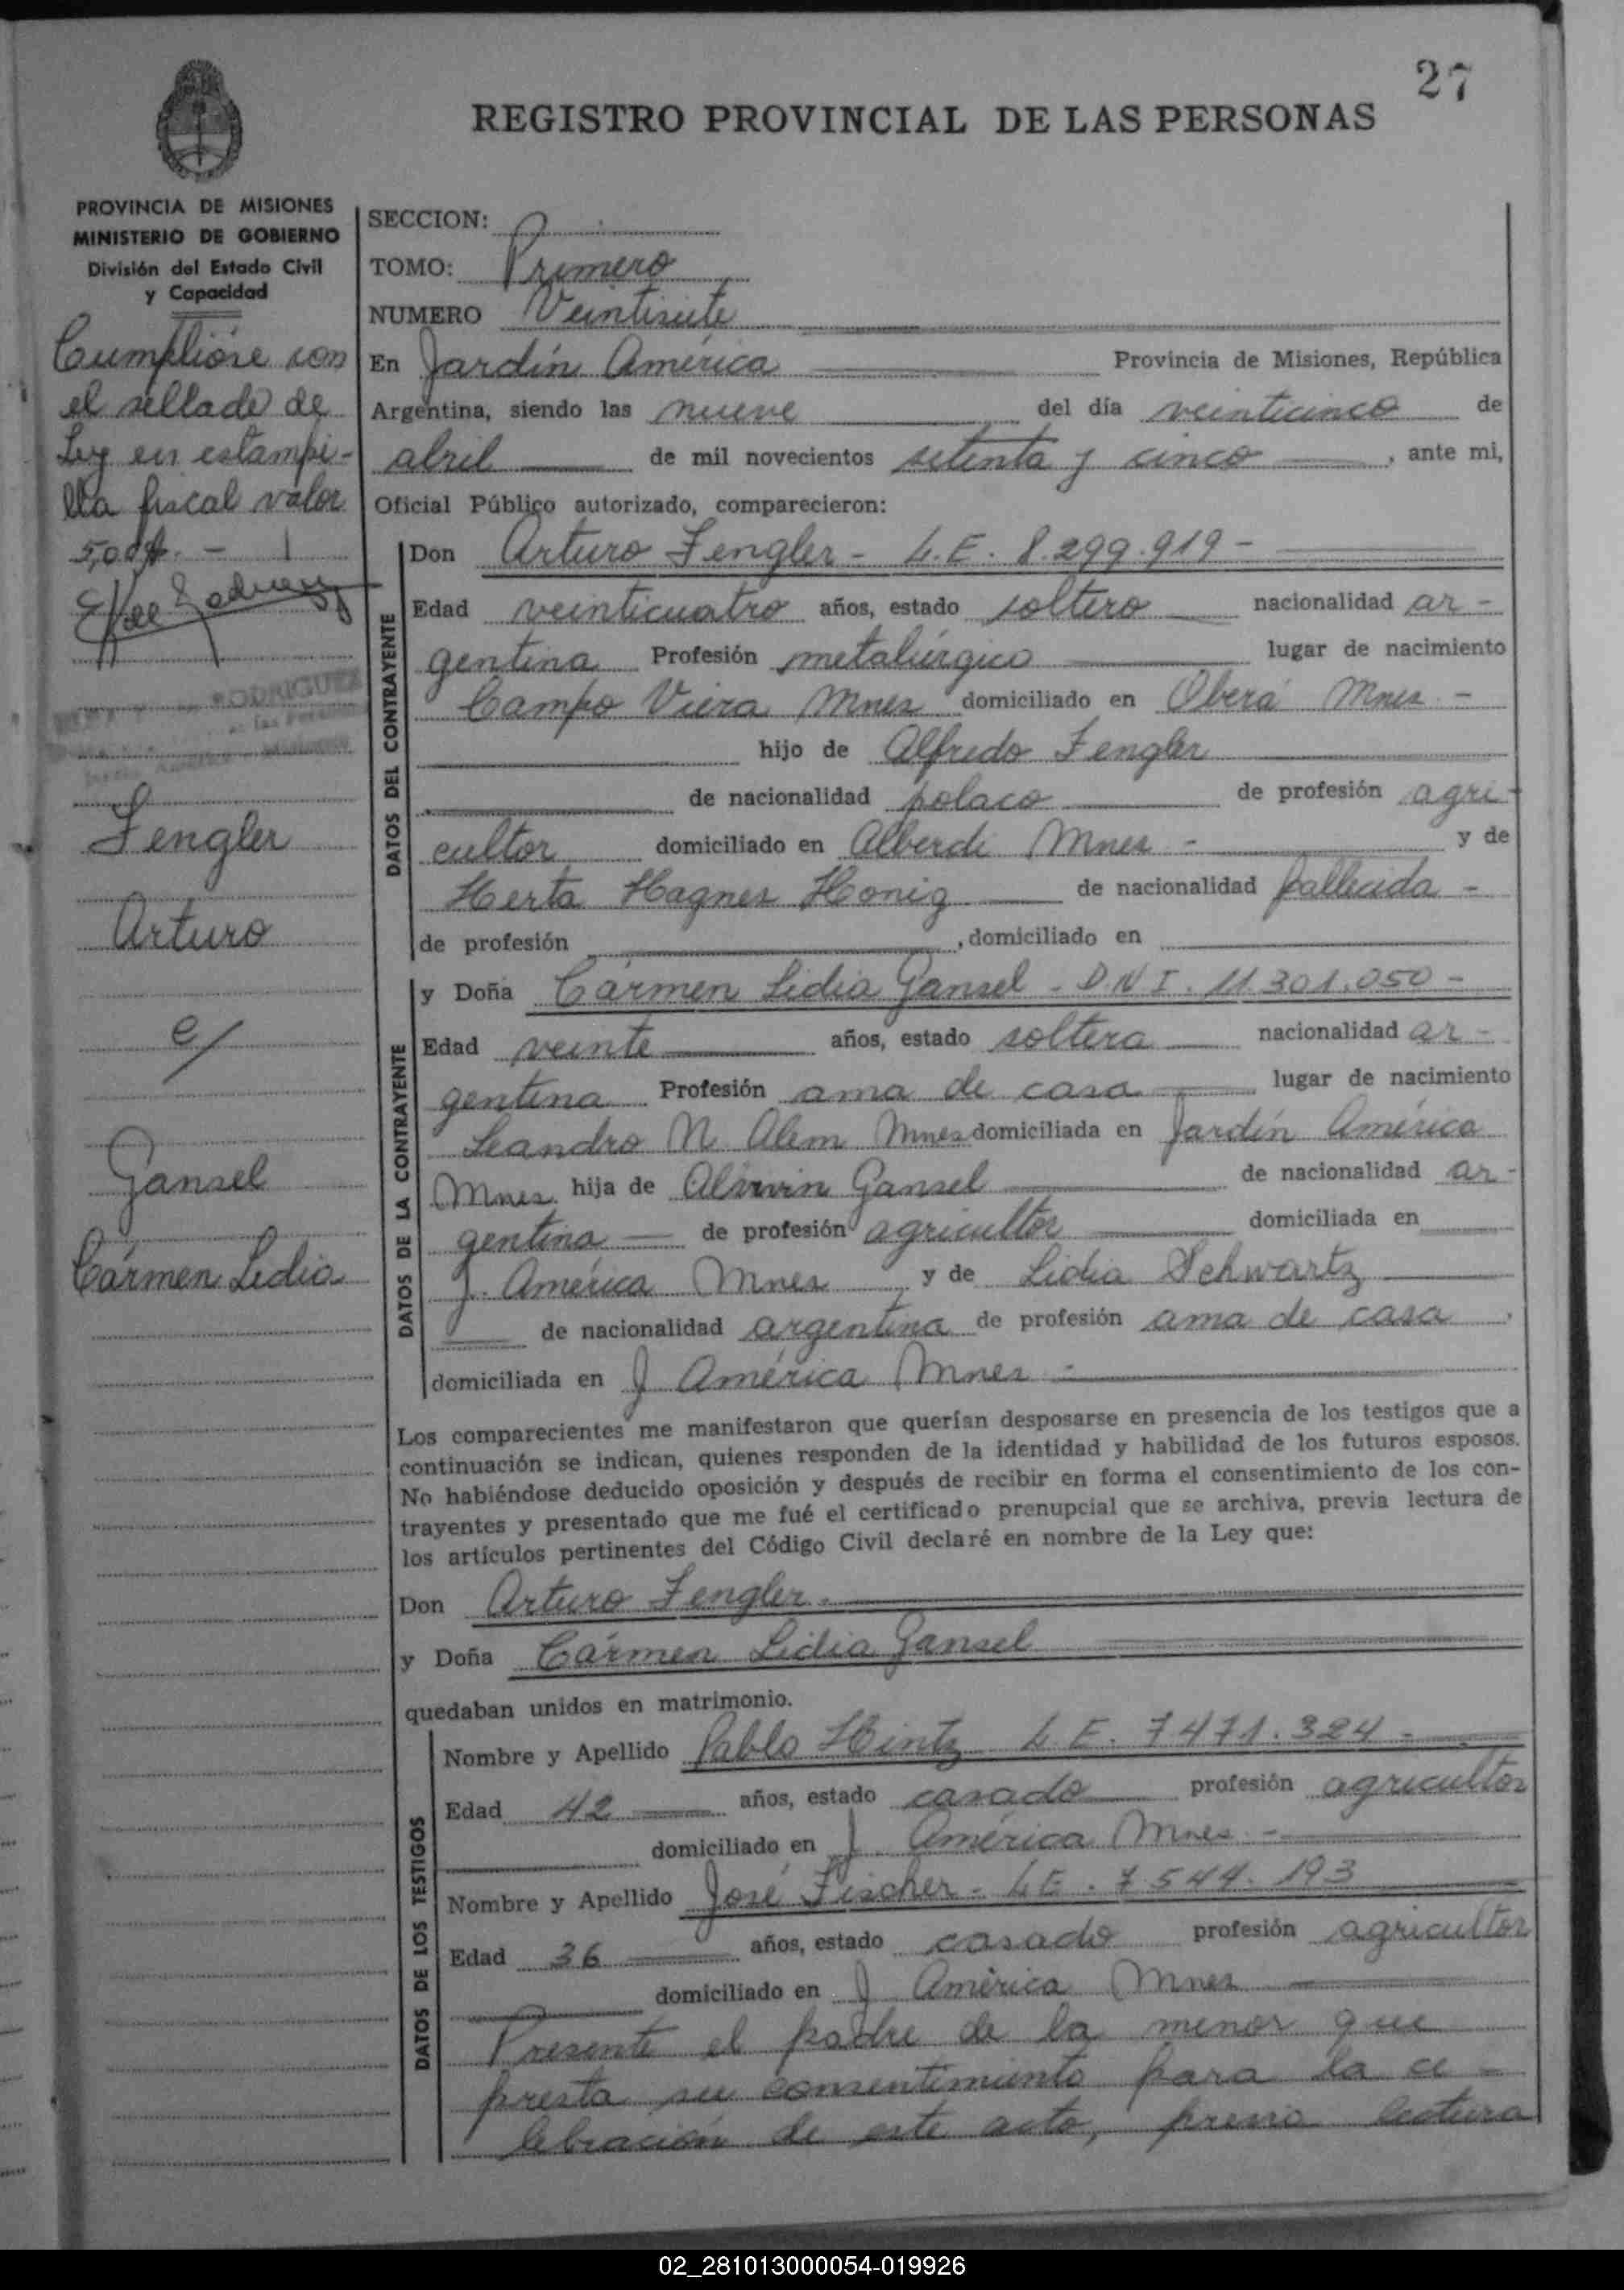 27
REGISTRO PROVINCIAL DE LAS PERSONAS
PROVINCIA DE MISIONES
MINISTERIO DE GOBIERNO
División del Estado Civil
y Capacidad
Cumplióse con
el sellado de
Ley en estampi-
lla fiscal valor
RODRIGUEZ
Fengler
Arturo
c/
Gansel
Cármen Lidia
SECCION:
TOMO: Primero
NUMERO Veintisiete
En Jardín América Provincia de Misiones, República
Argentina, siendo las nueve del día veinticinco de
abril de mil novecientos setenta y cinco, ante mi,
Oficial Público autorizado, comparecieron:
DATOS DEL CONTRAYENTE
Don Arturo Fengler - L.E. 8.299.919 -
Edad veinticuatro años, estado soltero nacionalidad ar-
gentina Profesión metalúrgico lugar de nacimiento
Campo Viera Mnes domiciliado en Oberá Mnes -
hijo de Alfredo Fengler
de nacionalidad polaco de profesión agri-
cultor domiciliado en Alberdi Mnes - y de
Herta Hagnes Honig de nacionalidad fallecida -
de profesión , domiciliado en
DATOS DE LA CONTRAYENTE
y Doña Cármen Lidia Gansel - D.N.I. 11.301.050 -
Edad veinte años, estado soltera nacionalidad ar-
gentina Profesión ama de casa lugar de nacimiento
Leandro N Alem Mnes domiciliada en Jardín América
Mnes. hija de Gansel de nacionalidad ar-
gentina de profesión agricultor domiciliada en
J. América Mnes y de Lidia Schwartz
de nacionalidad argentina de profesión ama de casa
domiciliada en J América Mnes -
Los comparecientes me manifestaron que querían desposarse en presencia de los testigos que a
continuación se indican, quienes responden de la identidad y habilidad de los futuros esposos.
No habiéndose deducido oposición y después de recibir en forma el consentimiento de los con-
trayentes y presentado que me fué el certificado prenupcial que se archiva, previa lectura de
los artículos pertinentes del Código Civil declaré en nombre de la Ley que:
Don Arturo Fengler.
y Doña Cármen Lidia Gansel
quedaban unidos en matrimonio.
DATOS DE LOS TESTIGOS
Nombre y Apellido Pablo Hintz L.E. 7471.324 -
Edad 42 años, estado casado profesión agricultor
domiciliado en J. América Mnes -
Nombre y Apellido José Fischer - L.E. 7544.193
Edad 36 años, estado casado profesión agricultor
domiciliado en J América Mnes
Presente el padre de la menor que
presta su consentimiento para la ce-
lebración de este acto, previa lectura
02_281013000054-019926